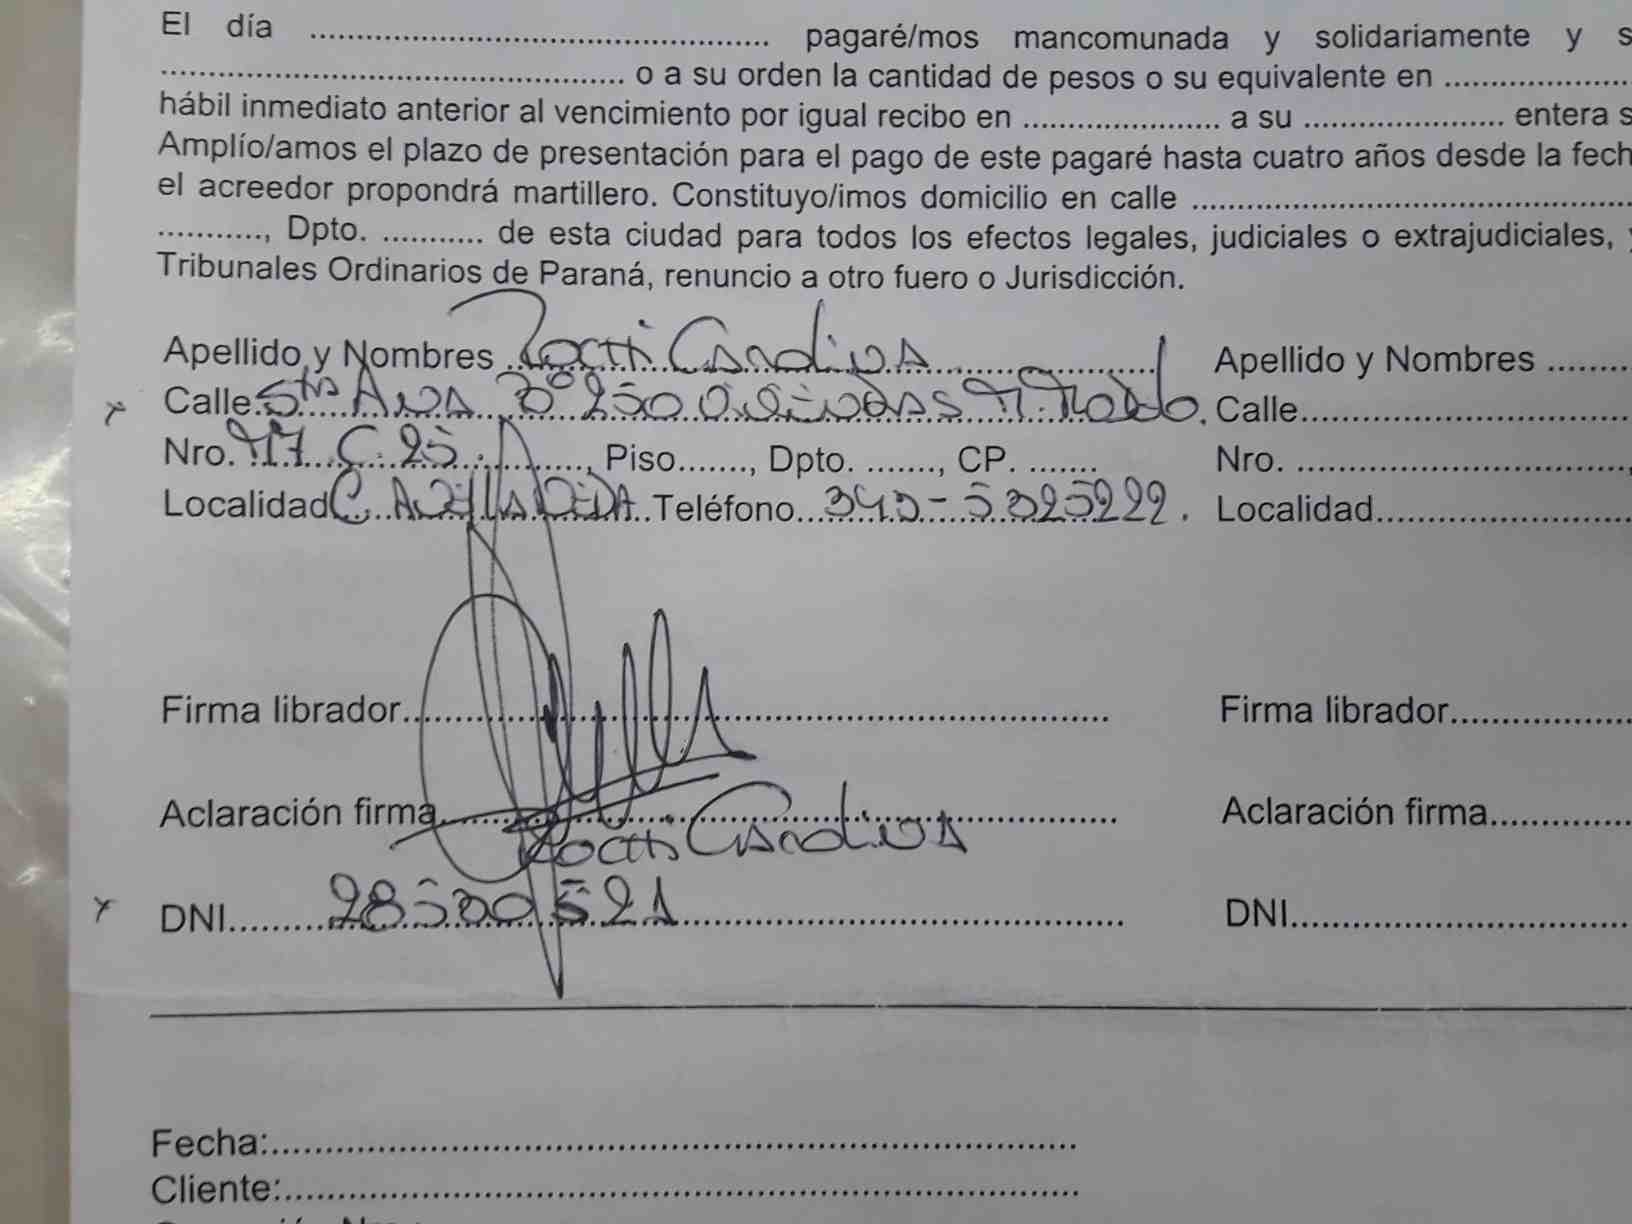 El día .......... pagaré/mos mancomunada y solidariamente y s
.......... o a su orden la cantidad de pesos o su equivalente en ..........
hábil inmediato anterior al vencimiento por igual recibo en .......... a su .......... entera s
Amplío/amos el plazo de presentación para el pago de este pagaré hasta cuatro años desde la fech
el acreedor propondrá martillero. Constituyo/imos domicilio en calle ..........
.........., Dpto. .......... de esta ciudad para todos los efectos legales, judiciales o extrajudiciales, y
Tribunales Ordinarios de Paraná, renuncio a otro fuero o Jurisdicción.
Apellido y Nombres .......... Apellido y Nombres ..........
Calle Sta Ana 250 Calle..........
Nro. C 25, Piso......., Dpto. ......., CP. ....... Nro. ..........,
Localidad .......... Teléfono 343-5325222. Localidad..........
Firma librador.......... Firma librador..........
Aclaración firma.......... Aclaración firma..........
DNI 28500521 DNI..........
Fecha:..........
Cliente:..........